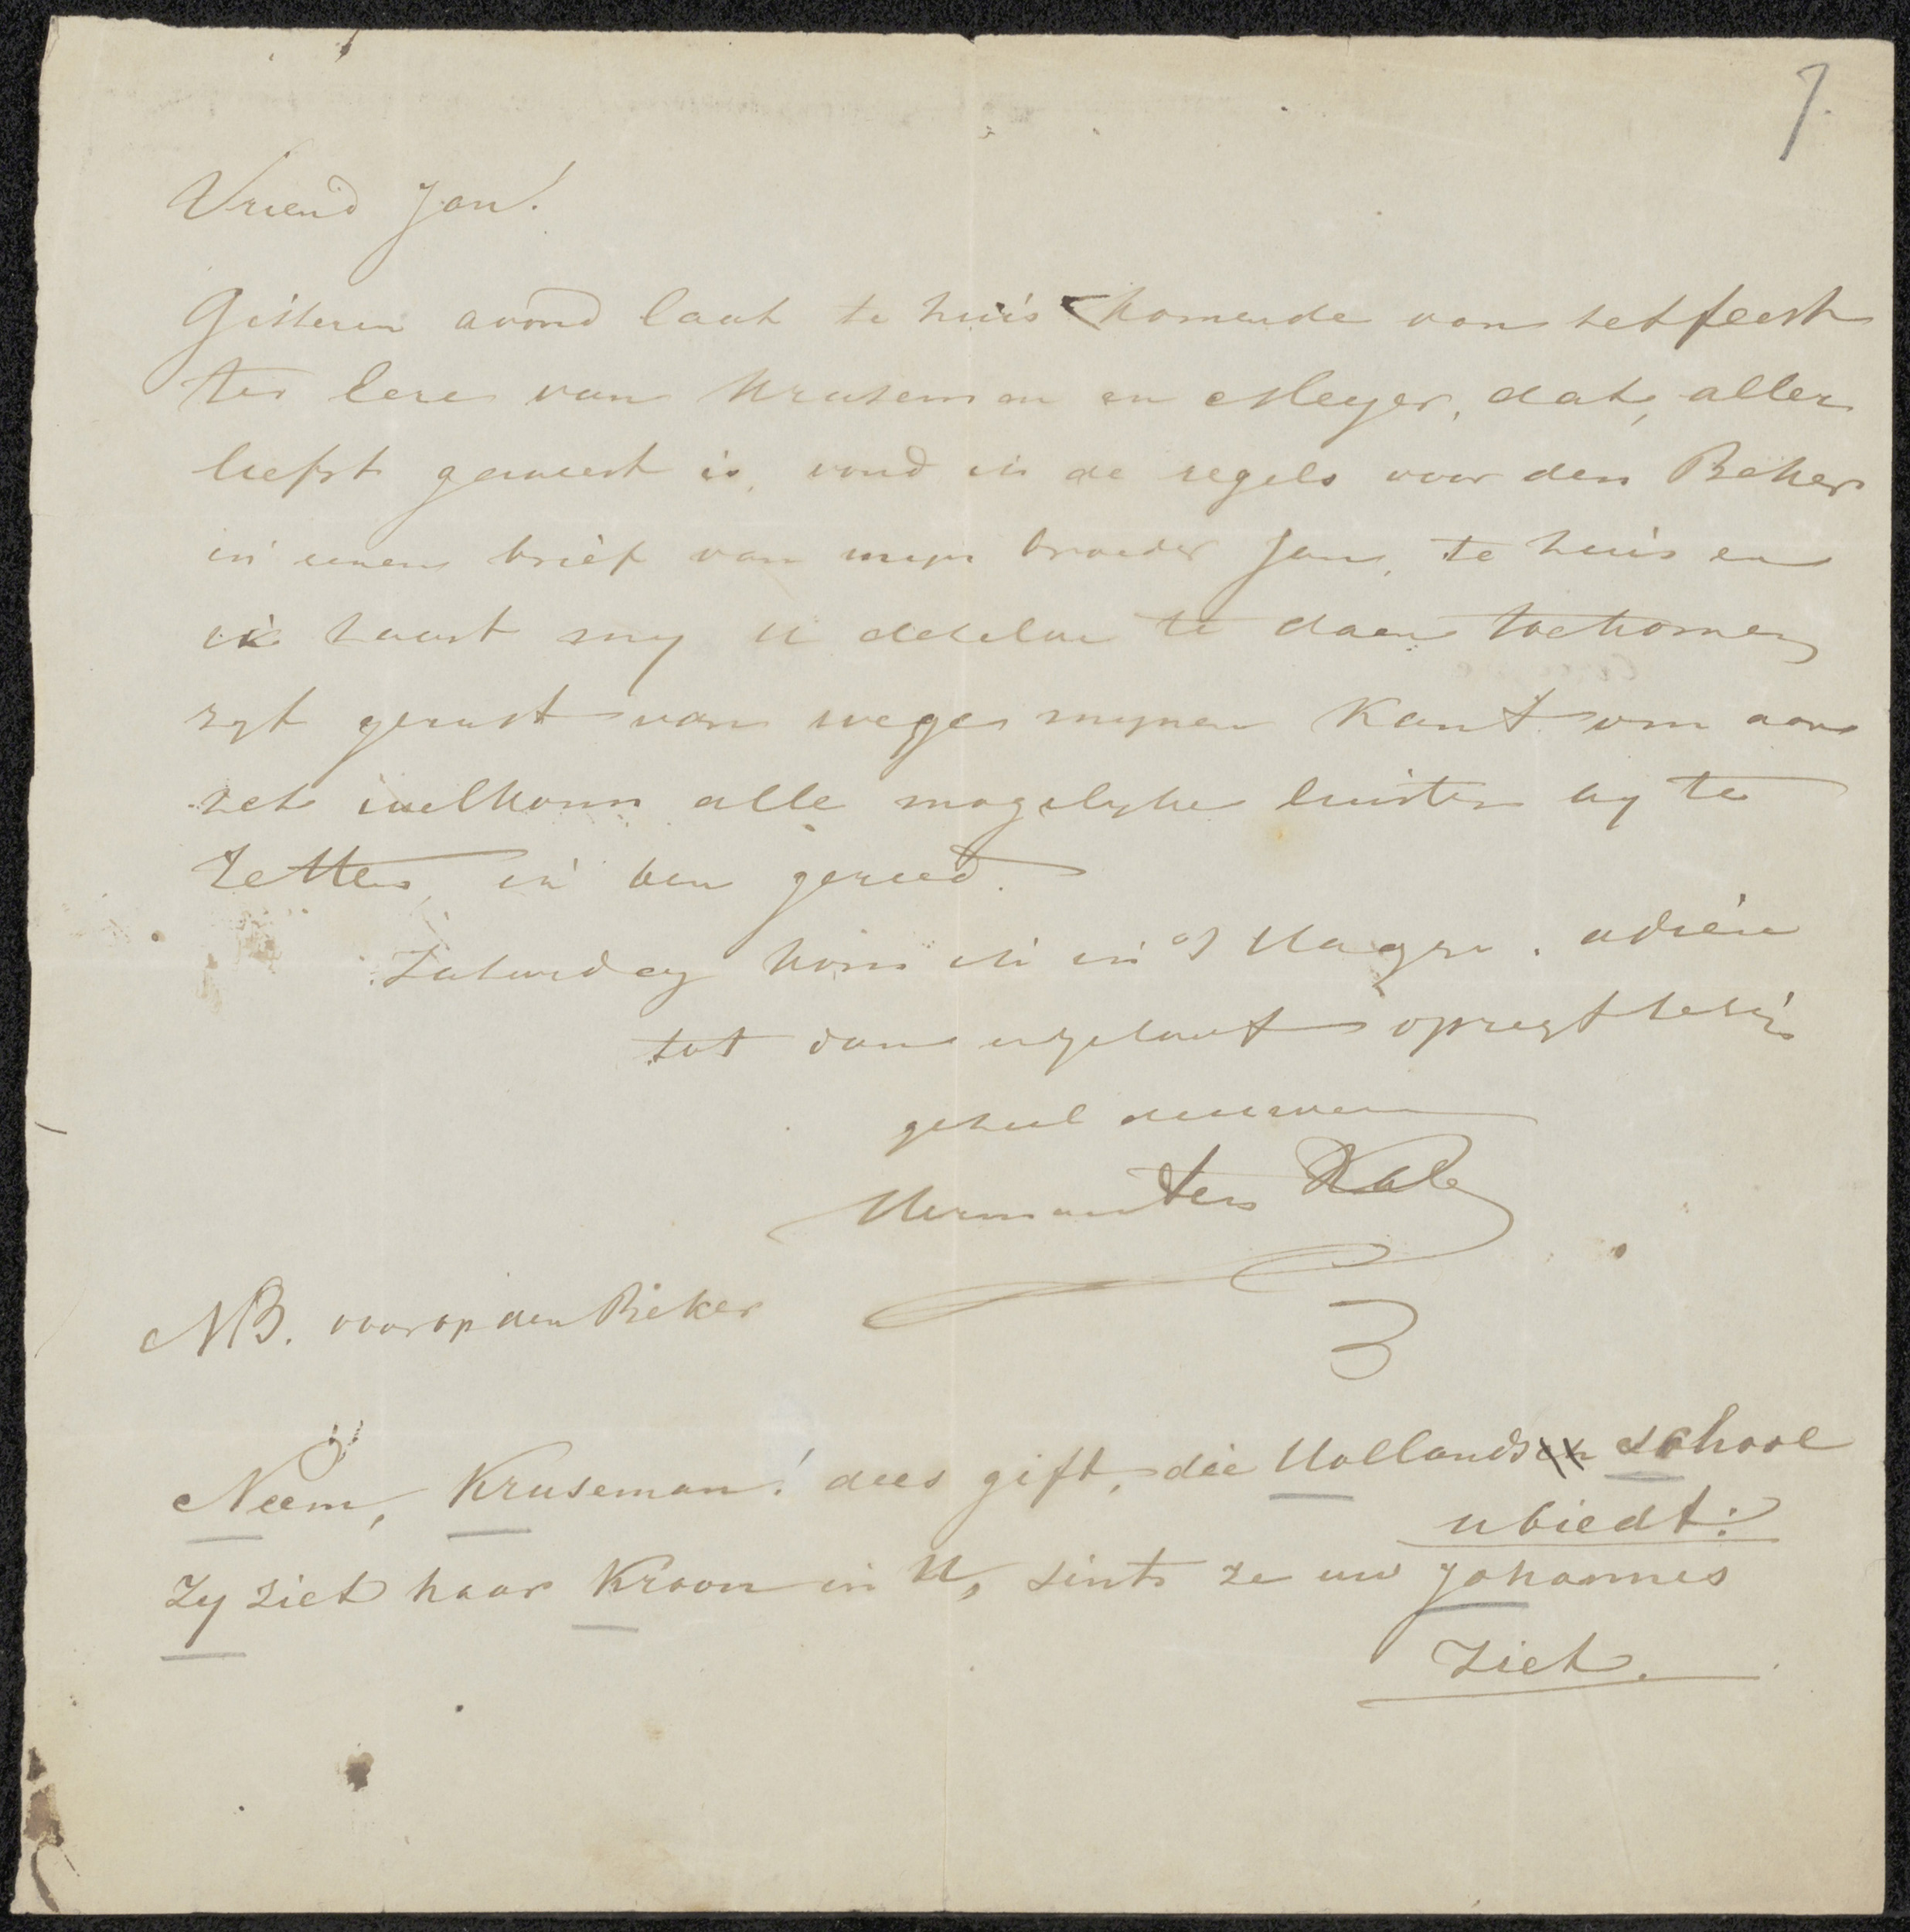 7.
Vriend Jan!
Gisteren avond laat te huis komende van het feest
ter eere van Kruseman en Meyer, dat aller
liefst geweest is, vond ik de regels voor den Beker
in eenen brief van mijn broeder Jan, te huis en
ik haast my u dezelve te doen toekomen
zyt gerust van wege mynen kant om aan
het welkom alle mogelyke luister by te
zetten, ik ben gereed.
Zaturdag kom ik in 's Hage. adieu
tot dan opregtelyk
geheel de uwe
Herman ten Kate
NB. voor op den Beker
Neem, Kruseman! dees gift, die Hollands school
u biedt:
Zy ziet haar Kroon in U, sints ze uw Johannes
ziet.